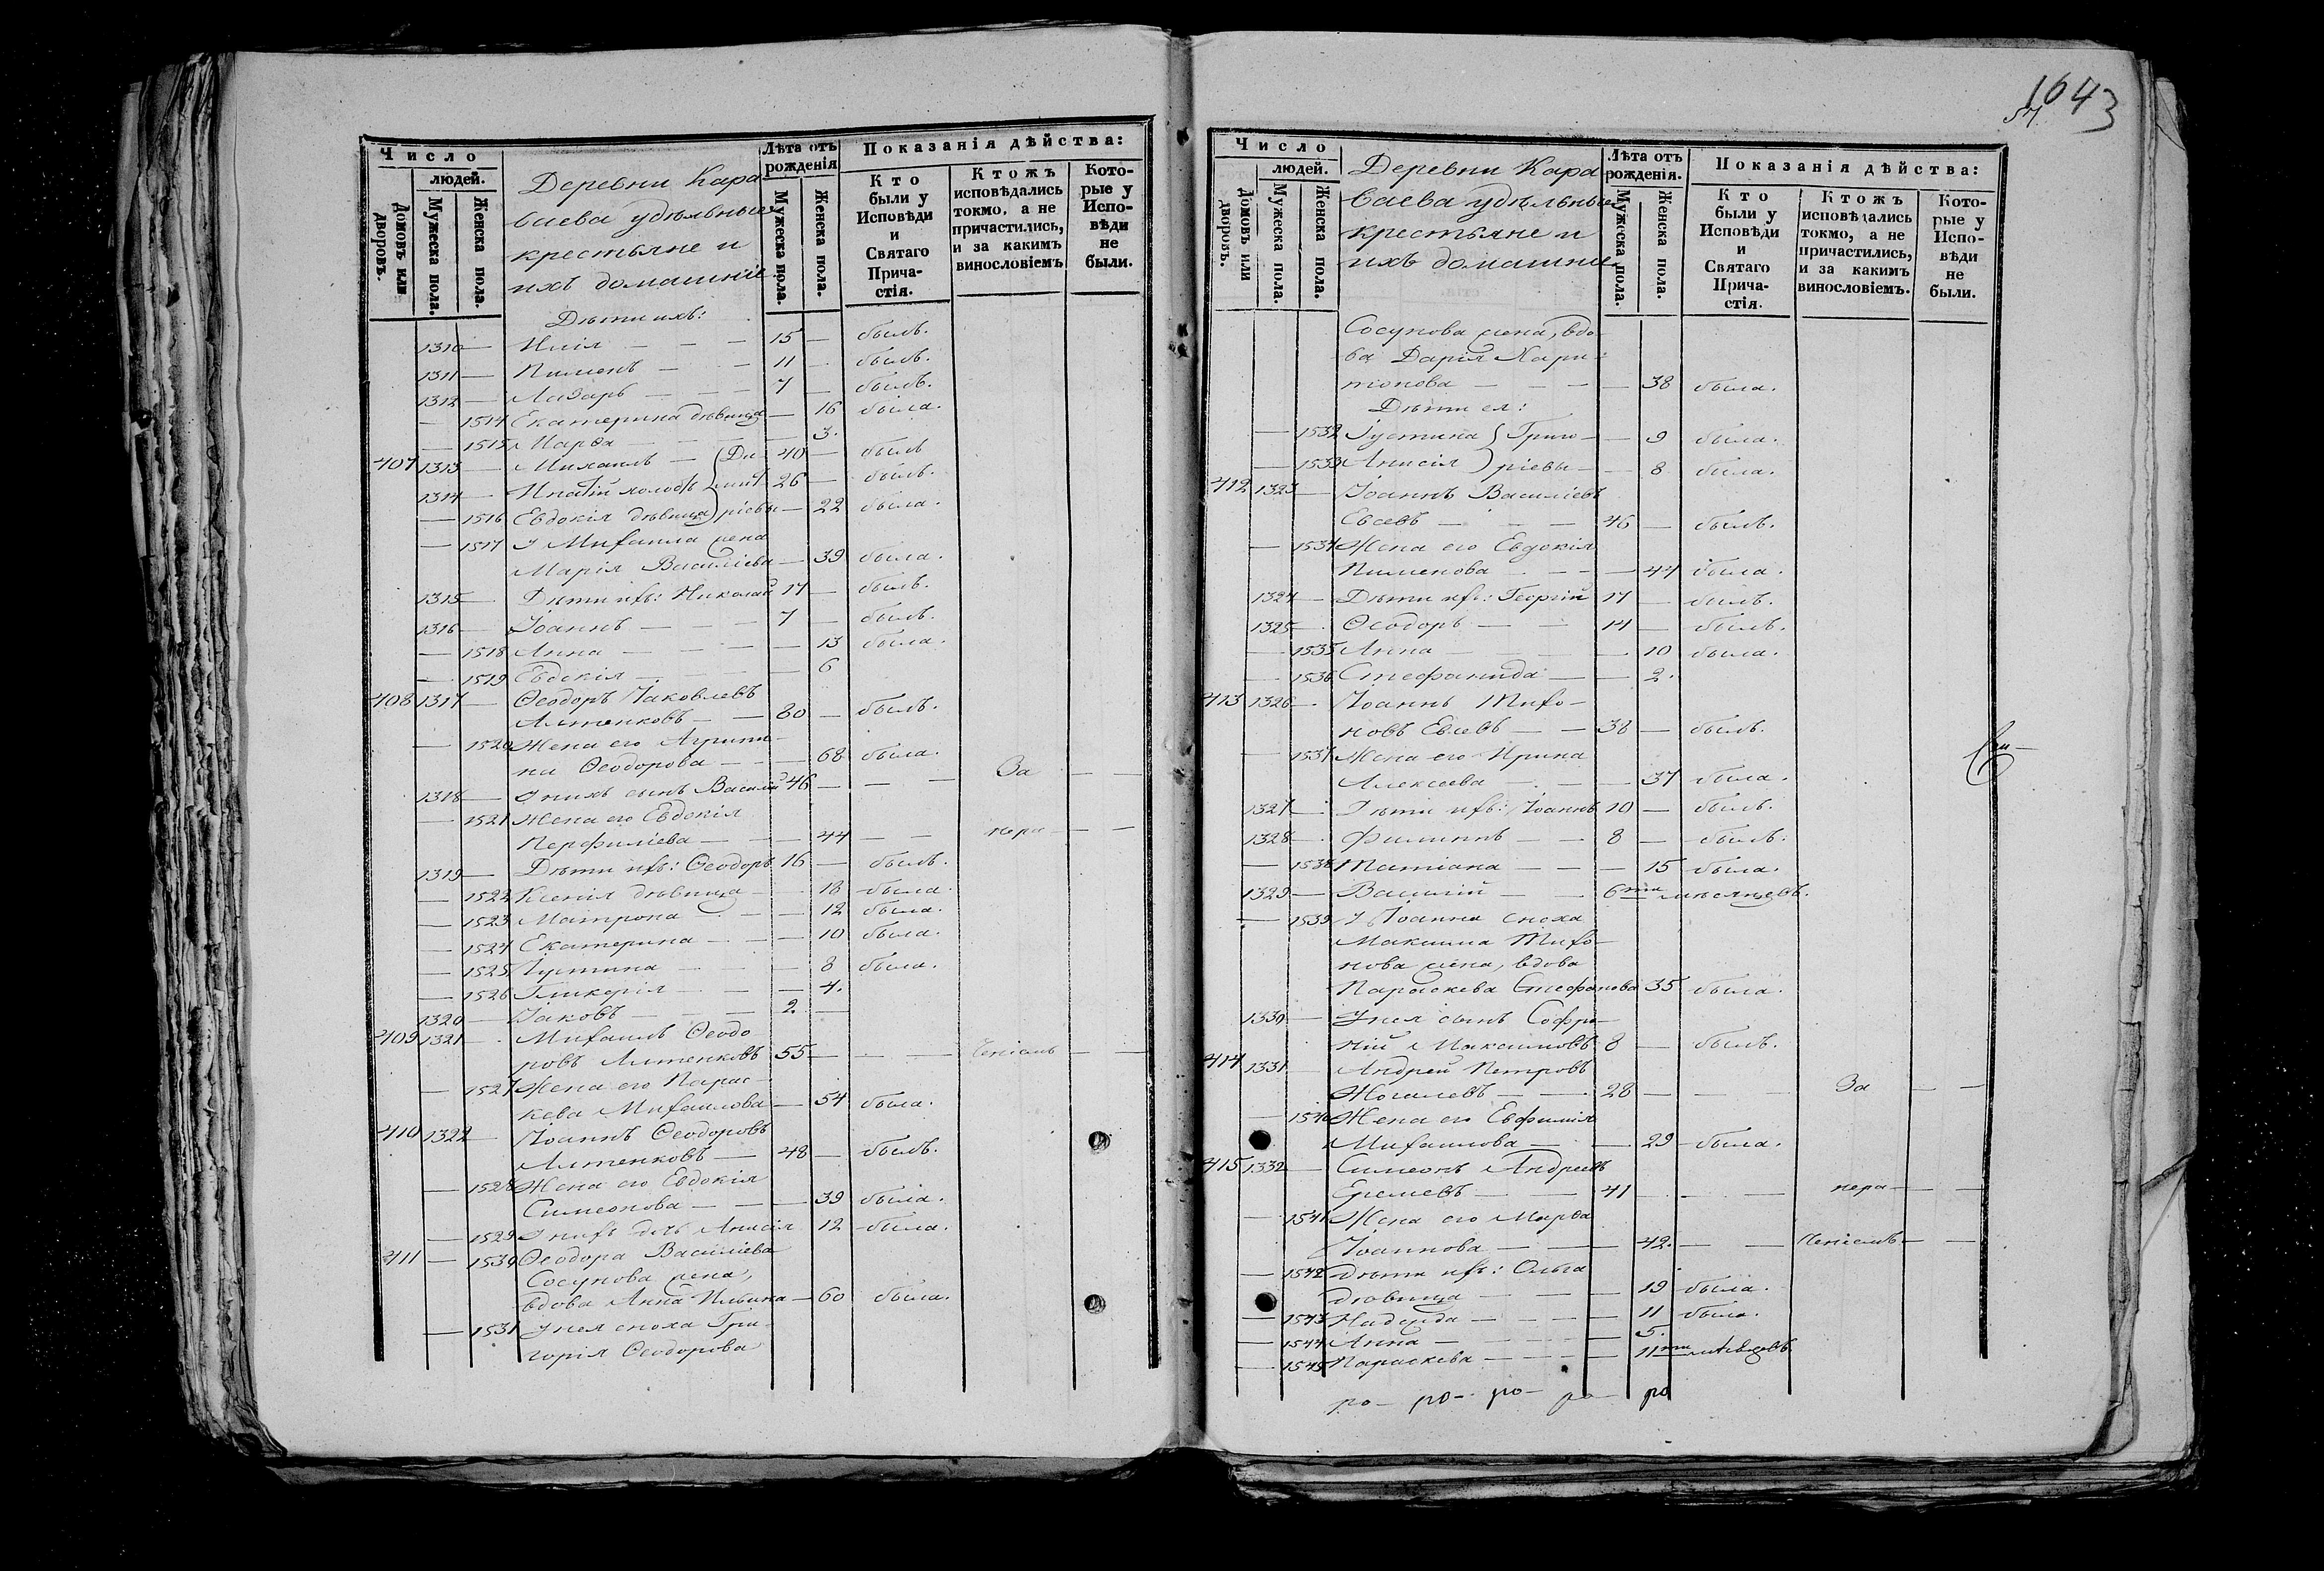 1643
57.
Число
людей.
Домовъ или дворовъ.
Мужеска пола.
Женска пола.
Деревни Кара
ваева удѣльные
крестьяне и
ихъ домашніе
Лѣта отъ рожденія
Мужеска пола.
Женска пола.
Показанія дѣйства:
Кто были у Исповѣди и Святаго Прича-стія.
Ктожъ исповѣдались токмо, а не причастились, и за какимъ винословіемъ
Кото-рые у Испо-вѣди не были.
Дѣти ихъ:
1310 — Илія — — — 15 — былъ.
1311 — Пименъ — — 11 — былъ.
1312 — Лазарь — — 7 — былъ.
— 1514 Екатерина дѣвица — 16 была.
— 1515 Марѳа — — — 3.
407 1313 — Михаилъ — Ди 40 — былъ
1314 — Ипатій холостъ мит 26 — былъ.
— 1516 Евдокія дѣвица ріевы — 22 была.
— 1517 У Михаила жена
Марія Василіева — 39 была.
1315 — Дѣти ихъ: Николай 17 — былъ.
1316 — Іоаннъ — — — 7 — былъ.
— 1518 Анна — — — — 13 была.
— 1519 Евдокія — — — 6
408 1317 — Ѳеодоръ Іаковлевъ
Алтенковъ — — 80 — былъ.
— 1520 Жена его Агрипи-
на Ѳеодорова — — 68 была.
1318 — У нихъ сынъ Василій 46 — — — За — —
— 1521 Жена его Евдокія
Перфиліева — — 44 — — нера — —
1319 — Дѣти ихъ: Ѳеодоръ 16 — былъ.
— 1522 Ксенія дѣвица — 18 была.
— 1523 Матрона — — 12 была.
— 1524 Екатерина — — 10 была.
— 1525 Іустина — — — 8 была.
— 1526 Гликерія — — — 4.
1320 — Іаковъ — — — 2. —
409 1321 — Михаилъ Ѳеодо
ровъ Алтенковъ 55 — — — ченіемъ — —
— 1527 Жена его Парас-
кева Михаилова — 54 была.
410 1322 — Іоаннъ Ѳеодоровъ
Алтенковъ — 48 — былъ.
— 1528 Жена его Евдокія
Симеонова — — — 39 была.
— 1529 У нихъ дочь Анисія 12 была.
411 — 1530 Ѳеодора Василіева
Сосунова жена,
вдова Анна Ильина — 60 была.
— 1531 У нея сноха Гри-
горія Ѳеодорова
Число
людей.
Домовъ или дворовъ.
Мужеска пола.
Женска пола.
Деревни Кара
ваева удѣльные
крестьяне и
ихъ домашніе
Лѣта отъ рожденія.
Мужеска пола.
Женска пола.
Показанія дѣйства:
Кто были у Исповѣди и Святаго Прича-стія.
Ктожъ исповѣдались токмо, а не причастились, и за какимъ винословіемъ.
Кото-рые у Испо-вѣди не были.
Сосунова жена, вдо-
ва Дарія Хари-
тонова — — — — 38 была.
Дѣти ея:
— 1532 Іустина Григо — — 9 была.
— 1533 Анисія ріевы — — 8 была.
412 1323 — Іоаннъ Василіевъ
Евсевъ — — — 46 — былъ.
— 1534 Жена его Евдокія
Пименова — — — — 44 была.
1324 — Дѣти ихъ: Георгій 17 — былъ.
1325 — Ѳеодоръ — — 14 — былъ.
— 1535 Анна — — — — 10 была.
— 1536 Стефанида — — 2.
413 1326 — Іоаннъ Тихо-
новъ Евсевъ — — 38 — былъ.
— 1537 Жена его Ирина
Алексеева — — — 37 была.
1327 — Дѣти ихъ: Іоаннъ 10 — былъ.
1328 — Филиппъ — — 8 — былъ.
— 1538 Татіана — — — 15 была.
1329 — Василій — — 6ти мѣсяцевъ.
— 1539 У Іоанна сноха
Максима Тихо-
нова жена, вдова
Параскева Стефанова 35 была.
1330 — У нея сынъ Софро-
ній Максимовъ 8 — былъ.
414 1331 — Андрей Петровъ
Жогалевъ — — 28 — — — За — —
— 1540 Жена его Евфимія
Михаилова — — 29 — была.
415 1332 — Симеонъ Андреевъ
Еремеевъ — — 41 — — — нера — —
— 1541 Жена его Марѳа
Іоаннова — — — 42. — — ченіемъ — —
— 1542 Дѣти ихъ: Ольга
дѣвица — — — — 19 была.
— 1543 Надежда — — — — 11 была.
— 1544 Анна — — — — — 5.
— 1545 Параскева — — — — 11ти мѣсяцевъ.
ро — ро — ро — ро — ро